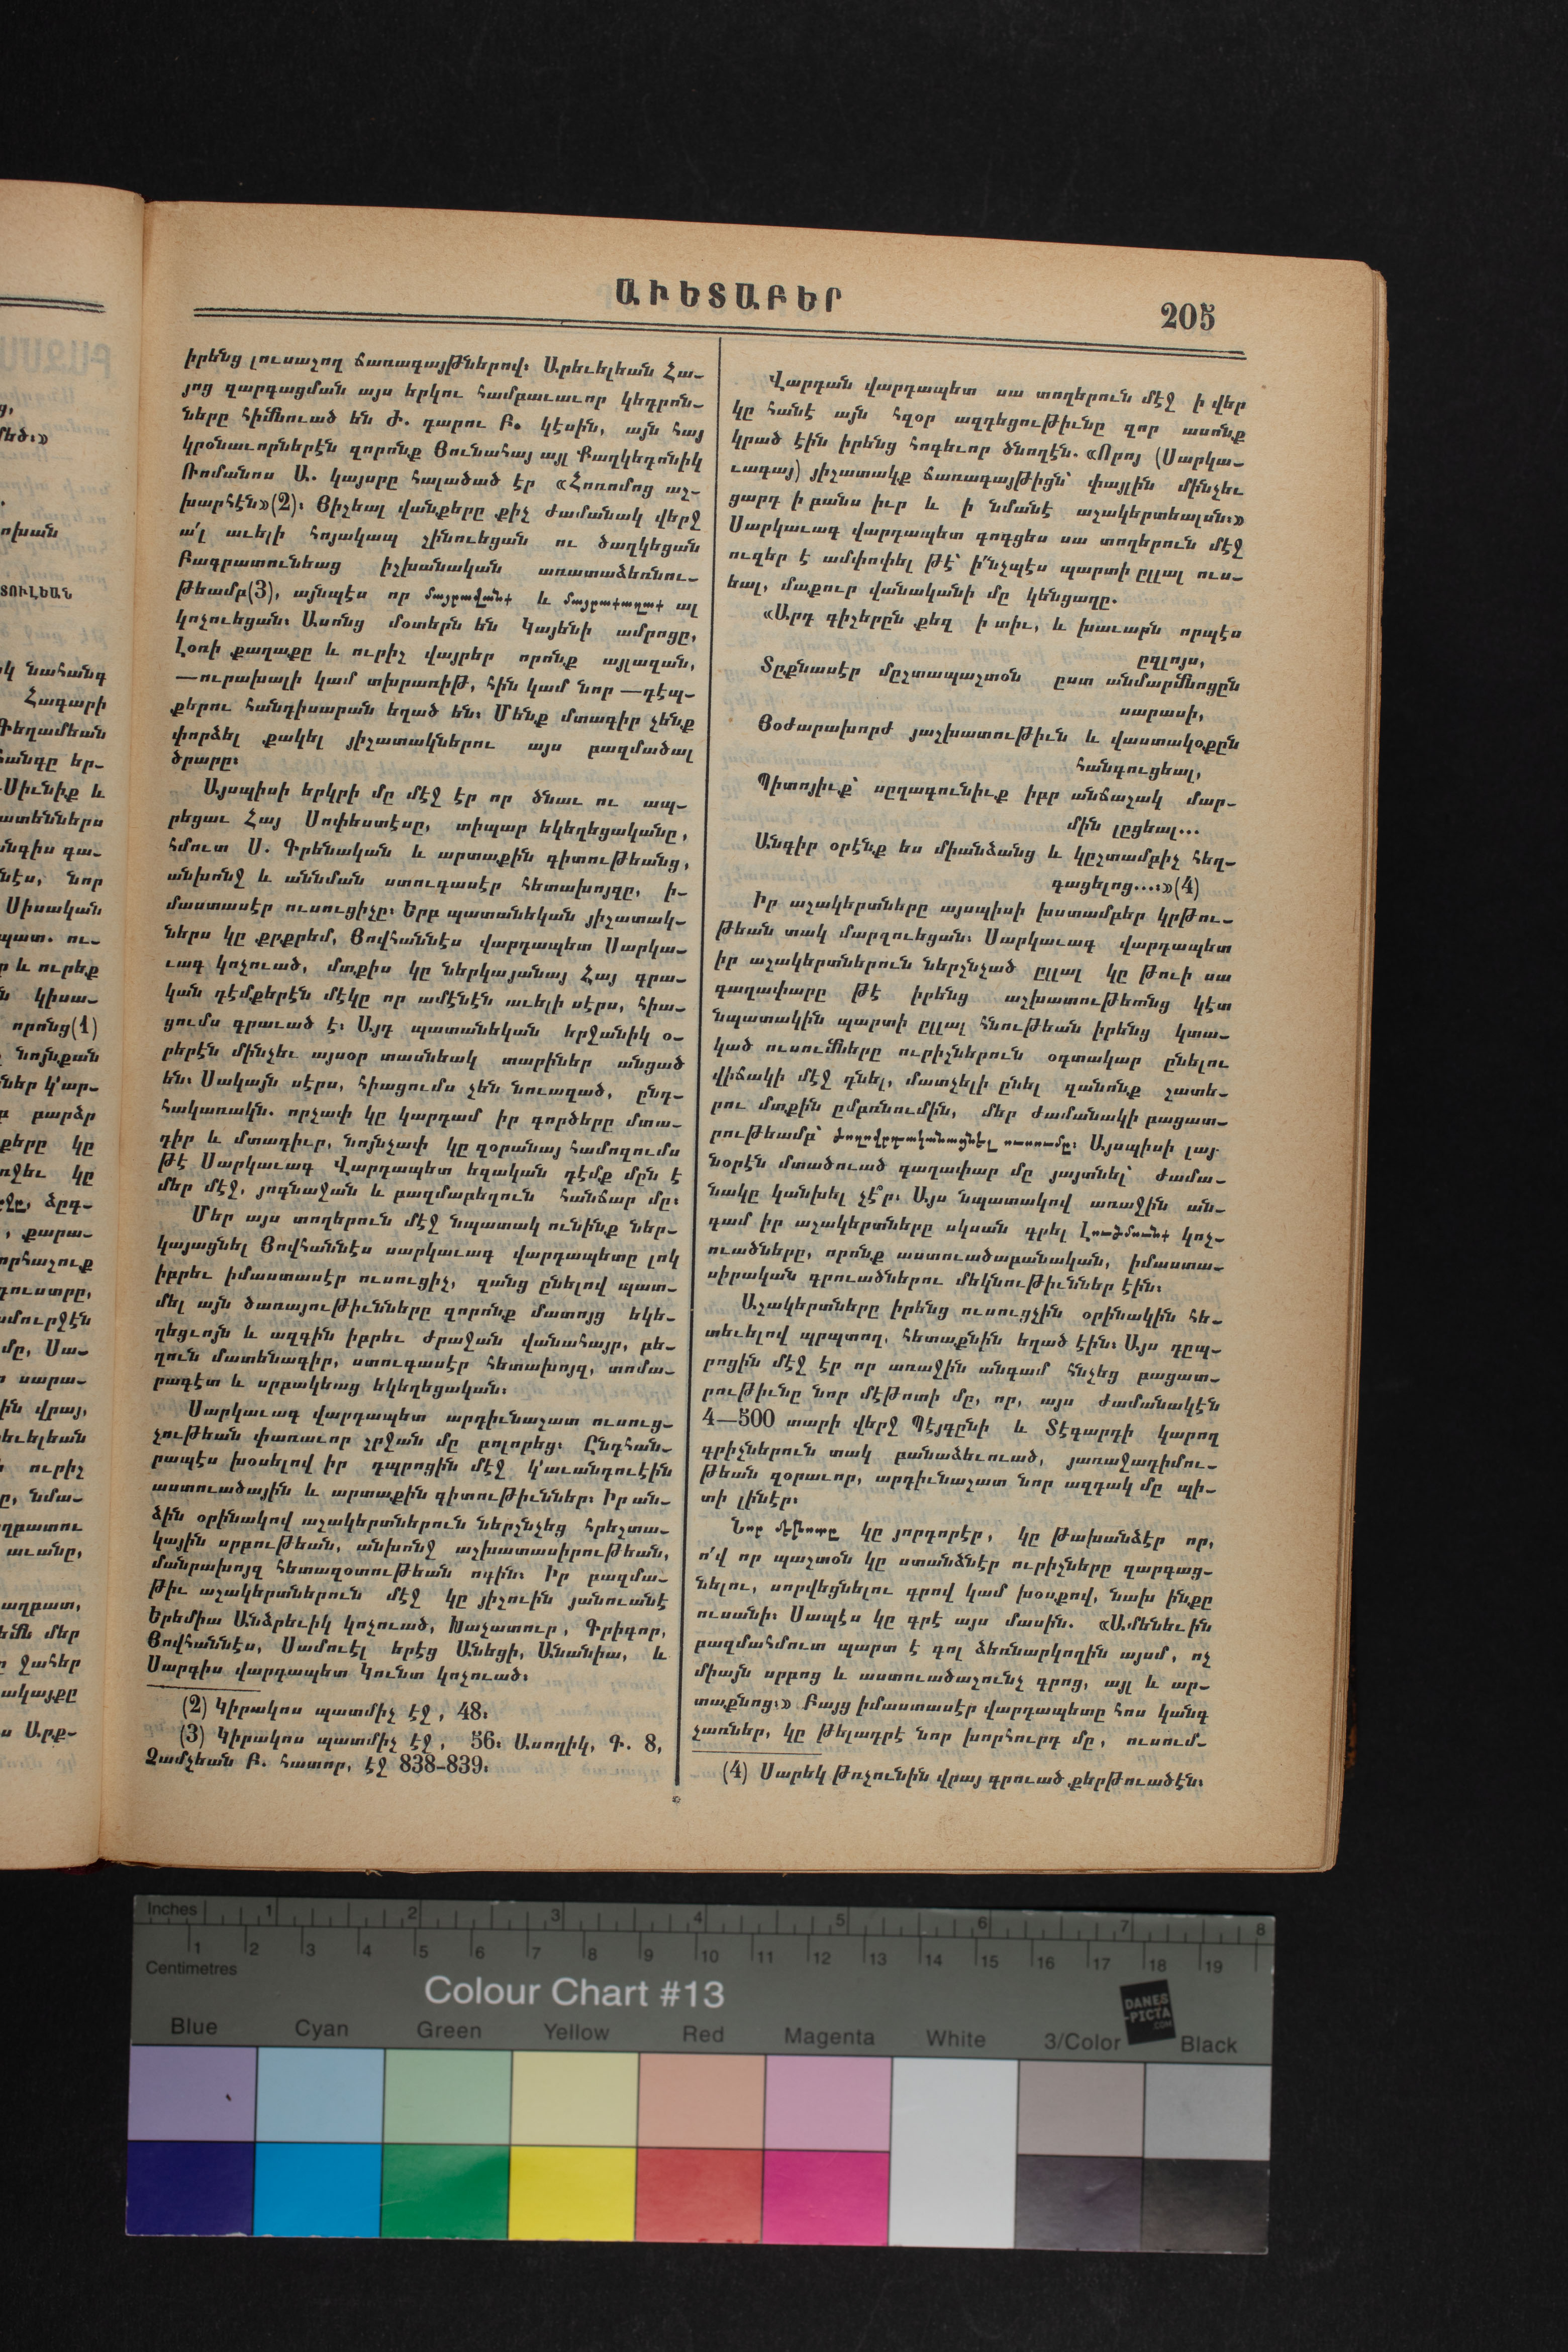 ԱՒԵՏԱԲԵՐ
205
իրենց լուսաշող ճառագայթներով։ Արեւելեան Հա–
յոց զարգացման այս երկու համբաւաւոր կեդրոն–
ները հիմնուած են Ժ. դարու Բ. կէսին, այն հայ
կրօնաւորներէն զորոնք Յունահայ այլ Քաղկեդոնիկ
Ռոմանոս Ա. կայսրը հալածած էր «Հոռոմոց աշ–
խարհէն»(2)։ Յիշեալ վանքերը քիչ ժամանակ վերջ
ա՛լ աւելի հոյակապ շինուեցան ու ծաղկեցան
Բագրատունեաց իշխանական առատաձեռնու–
թեամբ(3), այնպէս որ մայրավանք և մայրաքաղաք ալ
կոչուեցան։ Ասոնց մօտերն են Կայենի ամրոցը,
Լօռի քաղաքը և ուրիշ վայրեր որոնք այլազան,
—ուրախալի կամ տխրառիթ, հին կամ նոր —դէպ–
քերու հանդիսարան եղած են։ Մենք մտադիր չենք
փորձել քակել յիշատակներու այս բազմածալ
ծրարը։
Այսպիսի երկրի մը մէջ էր որ ծնաւ ու ապ–
րեցաւ Հայ Սոփեստէսը, տիպար եկեղեցականը,
հմուտ Ս. Գրենական և արտաքին գիտութեանց,
անխոնջ և աննման ստուգասէր հետախոյզը, ի–
մաստասէր ուսուցիչը։ Երբ պատանեկան յիշատակ–
ներս կը քրքրեմ, Յովհաննէս վարդապետ Սարկա–
ւագ կոչուած, մտքիս կը ներկայանայ Հայ գրա–
կան դէմքերէն մէկը որ ամէնէն աւելի սէրս, հիա–
ցումս գրաւած է։ Այդ պատանեկան երջանիկ օ–
րերէն մինչեւ այսօր տասնեակ տարիներ անցած
են։ Սակայն սէրս, հիացումս չեն նուազած, ընդ–
հակառակն. որչափ կը կարդամ իր գործերը մտա–
դիր և մտադիւր, նոյնչափ կը զօրանայ համոզումս
թէ Սարկաւագ Վարդապետ եզական դէմք մըն է
մեր մէջ, յոգնաջան և բազմաբեղուն հանճար մը։
Մեր այս տողերուն մէջ նպատակ ունինք ներ–
կայացնել Յովհաննէս սարկաւագ վարդապետը լոկ
իբրեւ իմաստասէր ուսուցիչ, զանց ընելով պատ–
մել այն ծառայութիւնները զորոնք մատոյց եկե–
ղեցւոյն և ազգին իբրեւ ժրաջան վանահայր, բե–
ղուն մատենագիր, ստուգասէր հետախոյզ, տոմա–
րագէտ և սրբակեաց եկեղեցական։
Սարկաւագ վարդապետ արդիւնաշատ ուսուց–
չութեան փառաւոր շրջան մը բոլորեց։ Ընդհան–
րապէս խօսելով իր դպրոցին մէջ կ'աւանդուէին
աստուածային և արտաքին գիտութիւններ։ Իր ան–
ձին օրինակով աշակերտներուն ներշնչեց հրեշտա–
կային սրբութեան, անխոնջ աշխատասիրութեան,
մանրախոյզ հետազօտութեան ոգին։ Իր բազմա–
թիւ աշակերտներուն մէջ կը յիշուին յանուանէ
Երեմիա Անձրեւիկ կոչուած, Խաչատուր, Գրիգոր,
Յովհաննէս, Սամուէլ երէց Անեցի, Անանիա, և
Սարգիս վարդապետ Կունտ կոչուած։
(2) Կիրակոս պատմիչ էջ, 48։
(3) Կիրակոս պատմիչ էջ, 56։ Ասողիկ, Գ. 8,
Չամչեան Բ. հատոր, էջ 838-839։
Վարդան վարդապետ սա տողերուն մէջ ի վեր
կը հանէ այն հզօր ազդեցութիւնը զոր ասոնք
կրած էին իրենց հոգեւոր ծնողէն. «Որոյ (Սարկա–
ւագայ) յիշատակք ճառագայթիցն՝ փայլին մինչեւ
ցարդ ի բանս իւր և ի նմանէ աշակերտեալսն։»
Սարկաւագ վարդապետ գոգցես սա տողերուն մէջ
ուզեր է ամփոփել թէ՝ ի՞նչպէս պարտի ըլլալ ուս–
եալ, մաքուր վանականի մը կենցաղը.
«Արդ գիշերըն քեզ ի տիւ, և խաւարն որպէս
ըզլոյս,
Տըքնասէր մըշտապաշտօն ըստ անմարմնոցըն
սարասի,
Յօժարախորժ յաշխատութիւն և վաստակօքըն
հանգուցեալ,
Պիտոյիւք՝ սըղագունիւք իբր անճաշակ մար–
մին լըցեալ...
Անգիր օրէնք ես միանձանց և կըշտամբիչ հեղ–
գացելոց...։»(4)
Իր աշակերտները այսպիսի խստամբեր կրթու–
թեան տակ մարզուեցան։ Սարկաւագ վարդապետ
իր աշակերտներուն ներշնչած ըլլալ կը թուի սա
գաղափարը թէ իրենց աշխատութեանց կէտ
նպատակին պարտի ըլլալ հնութեան իրենց կտա–
կած ուսումները ուրիշներուն օգտակար ընելու
վիճակի մէջ դնել, մատչելի ընել զանոնք շատե–
րու մտքին ըմբռնումին, մեր ժամանակի բացատ–
րութեամբ՝ ժողովրդականացնել ուսումը։ Այսպիսի լայ
նօրէն մտածուած գաղափար մը յայտնել՝ ժամա–
նակը կանխել չէ՞ր։ Այս նպատակով առաջին ան–
գամ իր աշակերտները սկսան գրել Լուծմունք կոչ–
ուածները, որոնք աստուածաբանական, իմաստա–
սիրական գրուածներու մեկնութիւններ էին։
Աշակերտները իրենց ուսուցչին օրինակին հե–
տեւելով պրպտող, հետաքնին եղած էին։ Այս դըպ–
րոցին մէջ էր որ առաջին անգամ հնչեց բացատ–
րութիւնը նոր մէթոտի մը, որ, այս ժամանակէն
4—500 տարի վերջ Պէյգընի և Տէգարդի կարող
գրիչներուն տակ բանաձեւուած, յառաջադիմու–
թեան զօրաւոր, արդիւնաշատ նոր ազդակ մը պի–
տի լինէր։
Նոր մէթոտը կը յորդորէր, կը թախանձէր որ,
ո՛վ որ պաշտօն կը ստանձնէր ուրիշները զարգաց–
նելու, սորվեցնելու գրով կամ խօսքով, նախ ինքը
ուսանի։ Սապէս կը գրէ այս մասին. «Ամենեւին
բազմահմուտ պարտ է գոլ ձեռնարկողին այսմ, ոչ
միայն սրբոց և աստուածաշունչ գրոց, այլ և ար–
տաքնոց։» Բայց իմաստասէր վարդապետը հոս կանգ
չառներ, կը թելադրէ նոր խորհուրդ մը, ուսում–
(4) Սարեկ թռչունին վրայ գրուած քերթուածէն։
Inches 1 2 3 4 5 6 7 8
1 2 3 4 5 6 7 8 9 10 11 12 13 14 15 16 17 18 19
Centimetres
Colour Chart #13
DANES
-PICTA
.COM
Blue Cyan Green Yellow Red Magenta White 3/Color Black